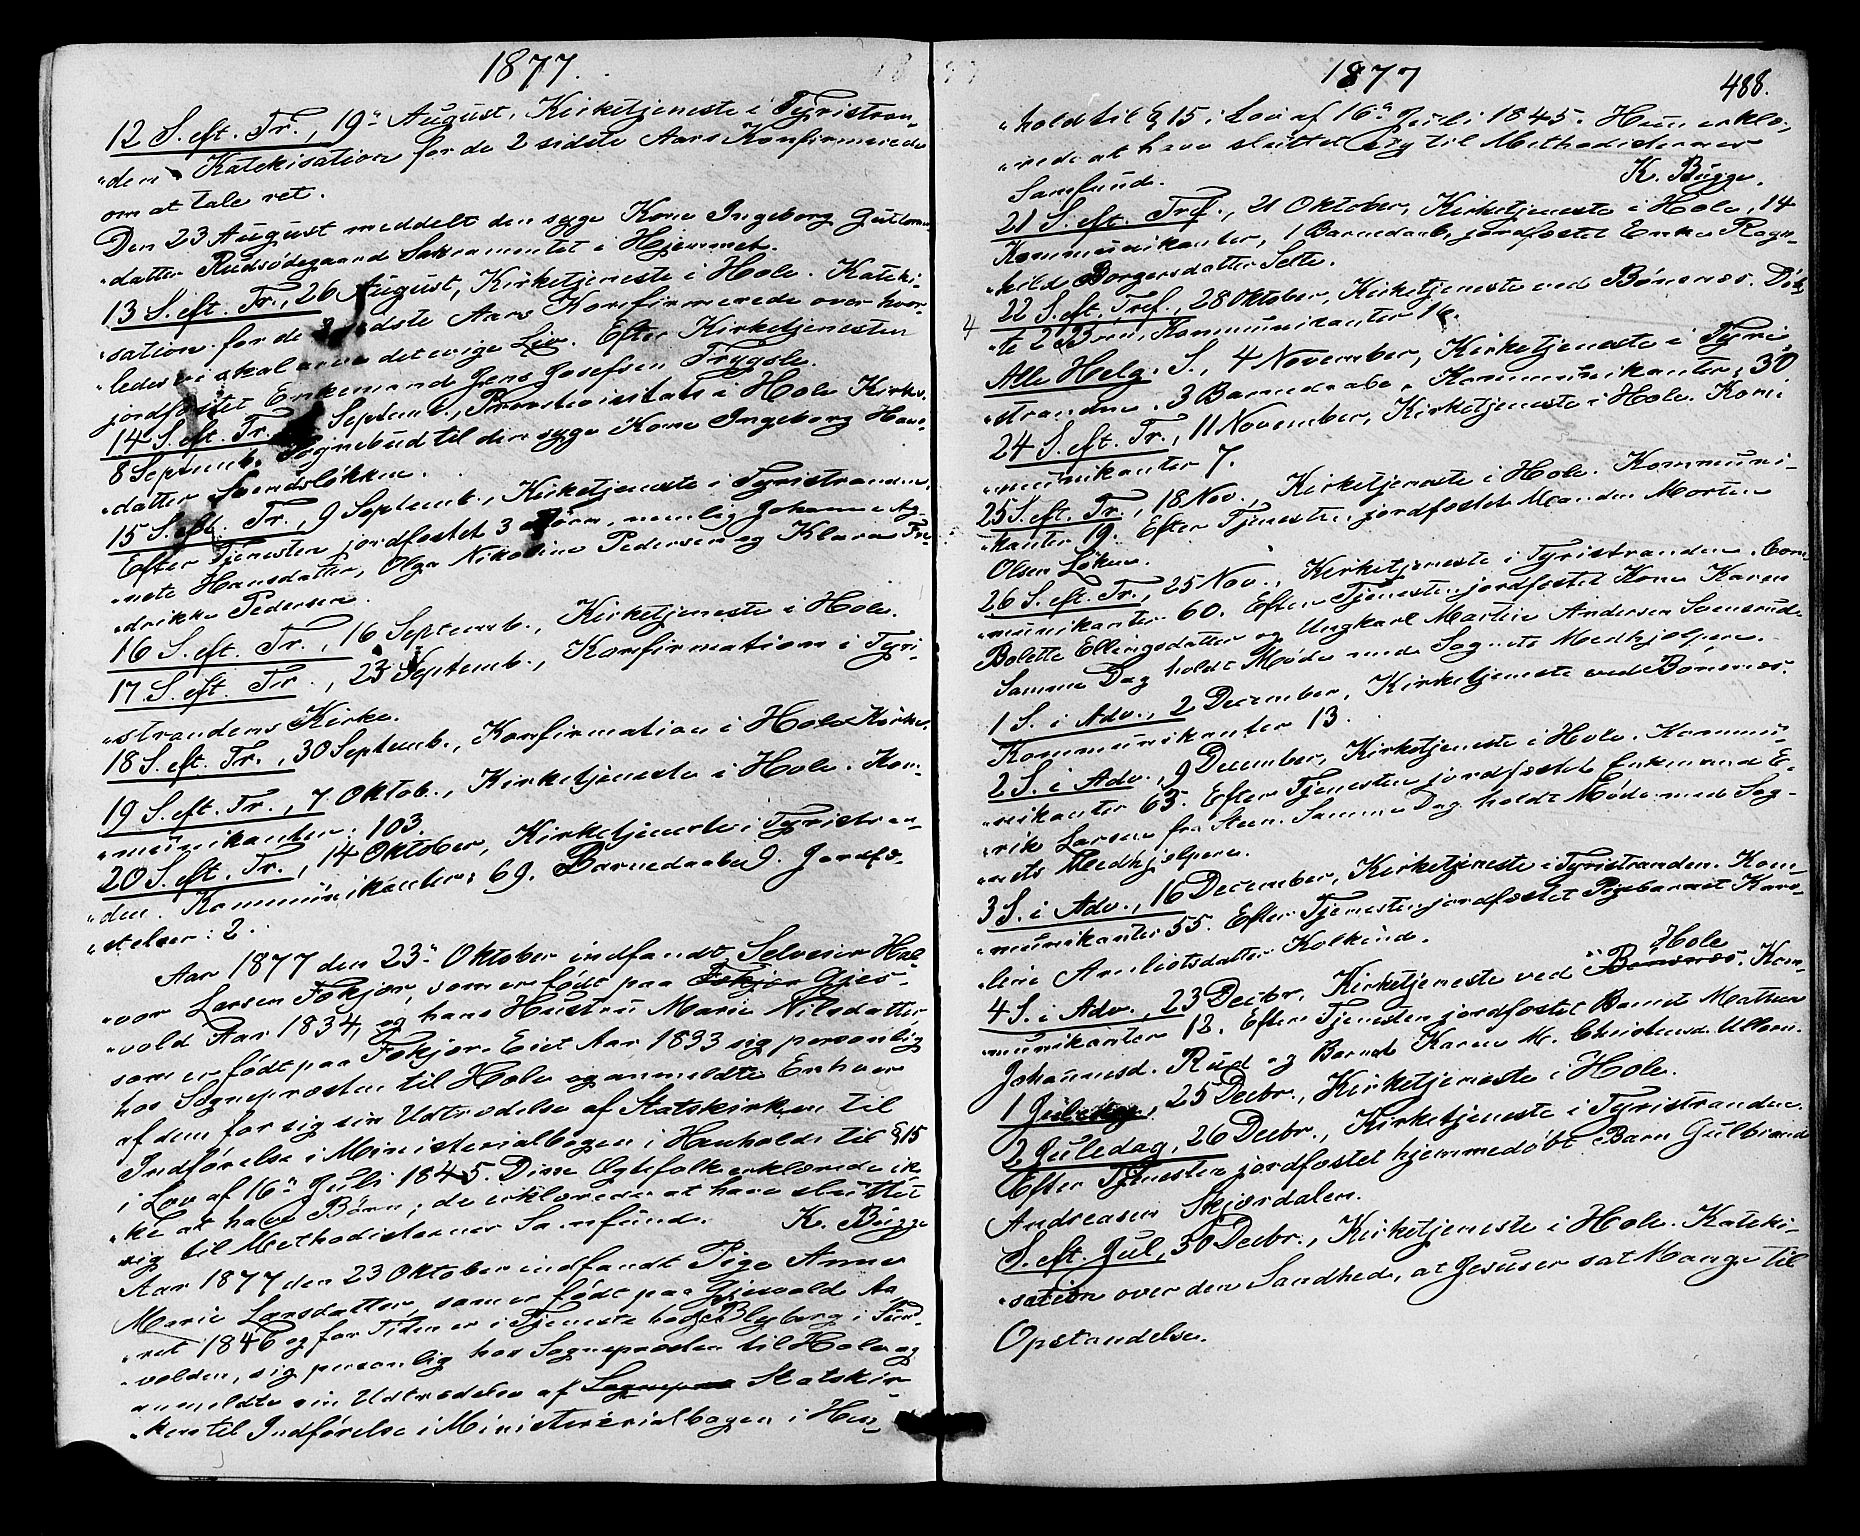 1877.
12 S. eft. Tr., 19de August, Kirketjeneste i Tyristran-
„den. Katekisation for de 2 sidste Aars Konfirmerede
om at tale ret.
Den 23 August meddelt den syge Kone Ingeborg Guttorms-
„datter Rudsødegaard Sakramentet i Hjemmet.
13 S. eft. Tr., 26 August, Kirketjeneste i Hole. Kateki-
„sation for de 2 sidste Aars Konfirmerede over hvor-
„ledes vi skal arve det evige Liv. Efter Kirketjenesten
jordfæstet Enkemand Jens Josefsen Trygsle.
14 S. eft. Tr. Septemb., Provstevisitats i Hole Kirke.
8 Septemb. Sognebud til den syge Kone Ingeborg Hans-
datter Svendsløkken.
15 S. eft. Tr., 9 Septemb., Kirketjeneste i Tyristranden.
Efter Tjenesten jordfæstet 3 Børn, nemlig Johanne Ag-
„nete Hansdatter, Olga Nikoline Pedersen og Klara Fre
„drikke Pedersen.
16 S. eft. Tr., 16 Septemb., Kirketjeneste i Hole.
17 S. eft. Tr., 23 Septemb., Konfirmation i Tyri-
„strandens Kirke.
18 S. eft. Tr., 30 Septemb., Konfirmation i Hole Kirke.
19 S. eft. Tr., 7 Oktob., Kirketjeneste i Hole. Kom-
„munikanter: 103.
20 S. eft. Tr., 14 Oktober, Kirketjeneste i Tyristran-
„den. Kommunikanter: 69. Barnedaabe 9. Jordfæ-
„stelser: 2.
Aar 1877 den 23de Oktober indfandt Selveier Hal-
„vor Larsen Fokjær, som er født paa Fokjær Gjes-
„vold Aar 1834, og hans Hustru Marie Nilsdatter
som er født paa Fokjær-Eiet Aar 1833 sig personlig
hos Sognepræsten til Hole og anmeldte Enhver
af dem for sig sin Udtrædelse af Statskirken til
Indførelse i Ministerialbogen i Henhold til § 15
i Lov af 16de Juli 1845. Disse Ægtefolk erklærede ik-
„ke at have Børn; de erklærede at have sluttet
sig til Methodisternes Samfund. K. Bugge
Aar 1877 den 23 Oktober indfandt Pige Anne
Marie Larsdatter, som er født paa Gjesvold Aa-
„ret 1846 og for Tiden er i Tjeneste hos Blyberg i Sund-
„volden, sig personlig hos Sognepræsten til Hole og
anmeldte sin Udtrædelse af Sognepræs Statskir-
„ken til Indførelse i Ministerialbogen i Hen-
1877
488.
„hold til § 15 i Lov af 16de Juli 1845. Hun erklæ-
„rede at have sluttet sig til Methodisternes
Samfund. K. Bugge.
21 S. eft. Tref., 21 Oktober, Kirketjeneste i Hole, 14
Kommunikanter, 1 Barnedaab, jordfæstet Enke Ragn-
„hild Borgersdatter Selte.
22 S. eft. Tref., 28 Oktober, Kirketjeneste ved Bønsnæs. Døb-
4 „te 2 Børn, Kommunikanter 16.
Alle Helg. S., 4 November, Kirketjeneste i Tyri-
„stranden. 3 Barnedaabe. Kommunikanter: 30
24 S. eft. Tr., 11 November, Kirketjeneste i Hole. Kom-
„munikanter 7.
25 S. eft. Tr., 18 Nov., Kirketjeneste i Hole. Kommuni-
„kanter 19. Efter Tjenesten jordfæstet Manden Morten
Olsen Løken.
26 S. eft. Tr., 25 Nov., Kirketjeneste i Tyristranden. Com-
„munikanter 60. Efter Tjenesten jordfæstet Kone Karen
Bolette Ellingsdatter og Ungkarl Martin Andersen Svensrud.
Samme Dag holdt Møde med Sognets Medhjælpere.
1 S. i Adv., 2 December, Kirketjeneste ved Bønsnæs.
Kommunikanter 13.
2 S. i Adv., 9 December, Kirketjeneste i Hole. Kommu-
„nikanter 65. Efter Tjenesten jordfæstet Enkemand E-
„rik Larsen fra Steen. Samme Dag holdt Møde med Sog-
„nets Medhjælpere.
3 S. i Adv., 16 December, Kirketjeneste i Tyristranden. Kom-
„munikanter 55. Efter Tjenesten jordfæstet Pigebarnet Karo-
„line Arnliotsdatter Kolkind.
4 S. i Adv., 23 Decbr., Kirketjeneste ved Bønsnæs Hole. Kom-
„munikanter 12. Efter Tjenesten jordfæstet Barnet Mathea
Johannesd. Rud og Barnet Karen M. Christensd. Ullern.
1 Juledag, 25 Decbr., Kirketjeneste i Hole.
2 Juledag, 26 Decbr., Kirketjeneste i Tyristranden.
Efter Tjenesten jordfæstet hjemmedøbt Barn Gulbrand
Andreasen Skjærdalen.
S. eft. Jul, 30 Decbr., Kirketjeneste i Hole. Kateki-
„sation over den Sandhed, at Jesus er sat Mange til
Opstandelse.